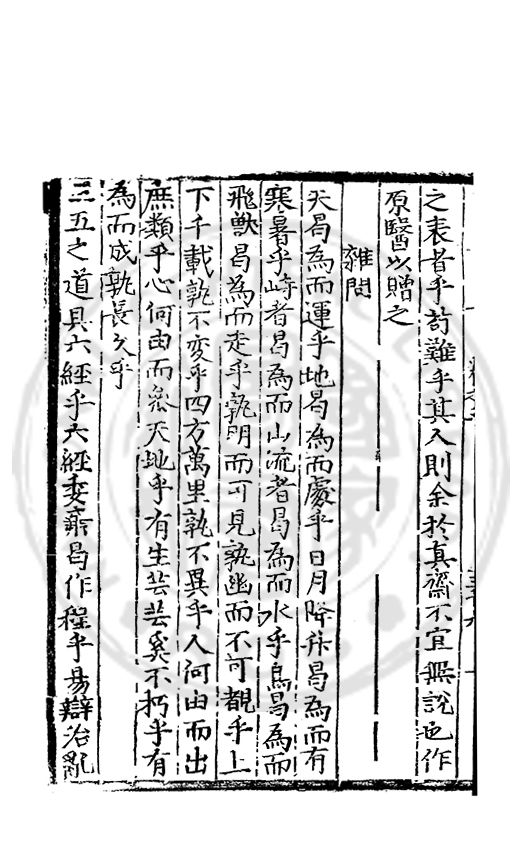 之表者乎苟難乎其人則余於真齋不宜無說也作
原醫以贈之
雜問
天曷為而運乎地曷為而處乎日月降升曷為而有
寒暑乎峙者曷為而山流者曷為而水乎鳥曷為而
飛獸曷為而走乎孰明而可見孰幽而不可覩乎上
下千載孰不変乎四方萬里孰不異乎人何由而出
庶類乎心何由而參天地乎有生芸芸奚不朽乎有
為而成孰長久乎
三五之道具六經乎六經委齋曷作程乎易辯治亂